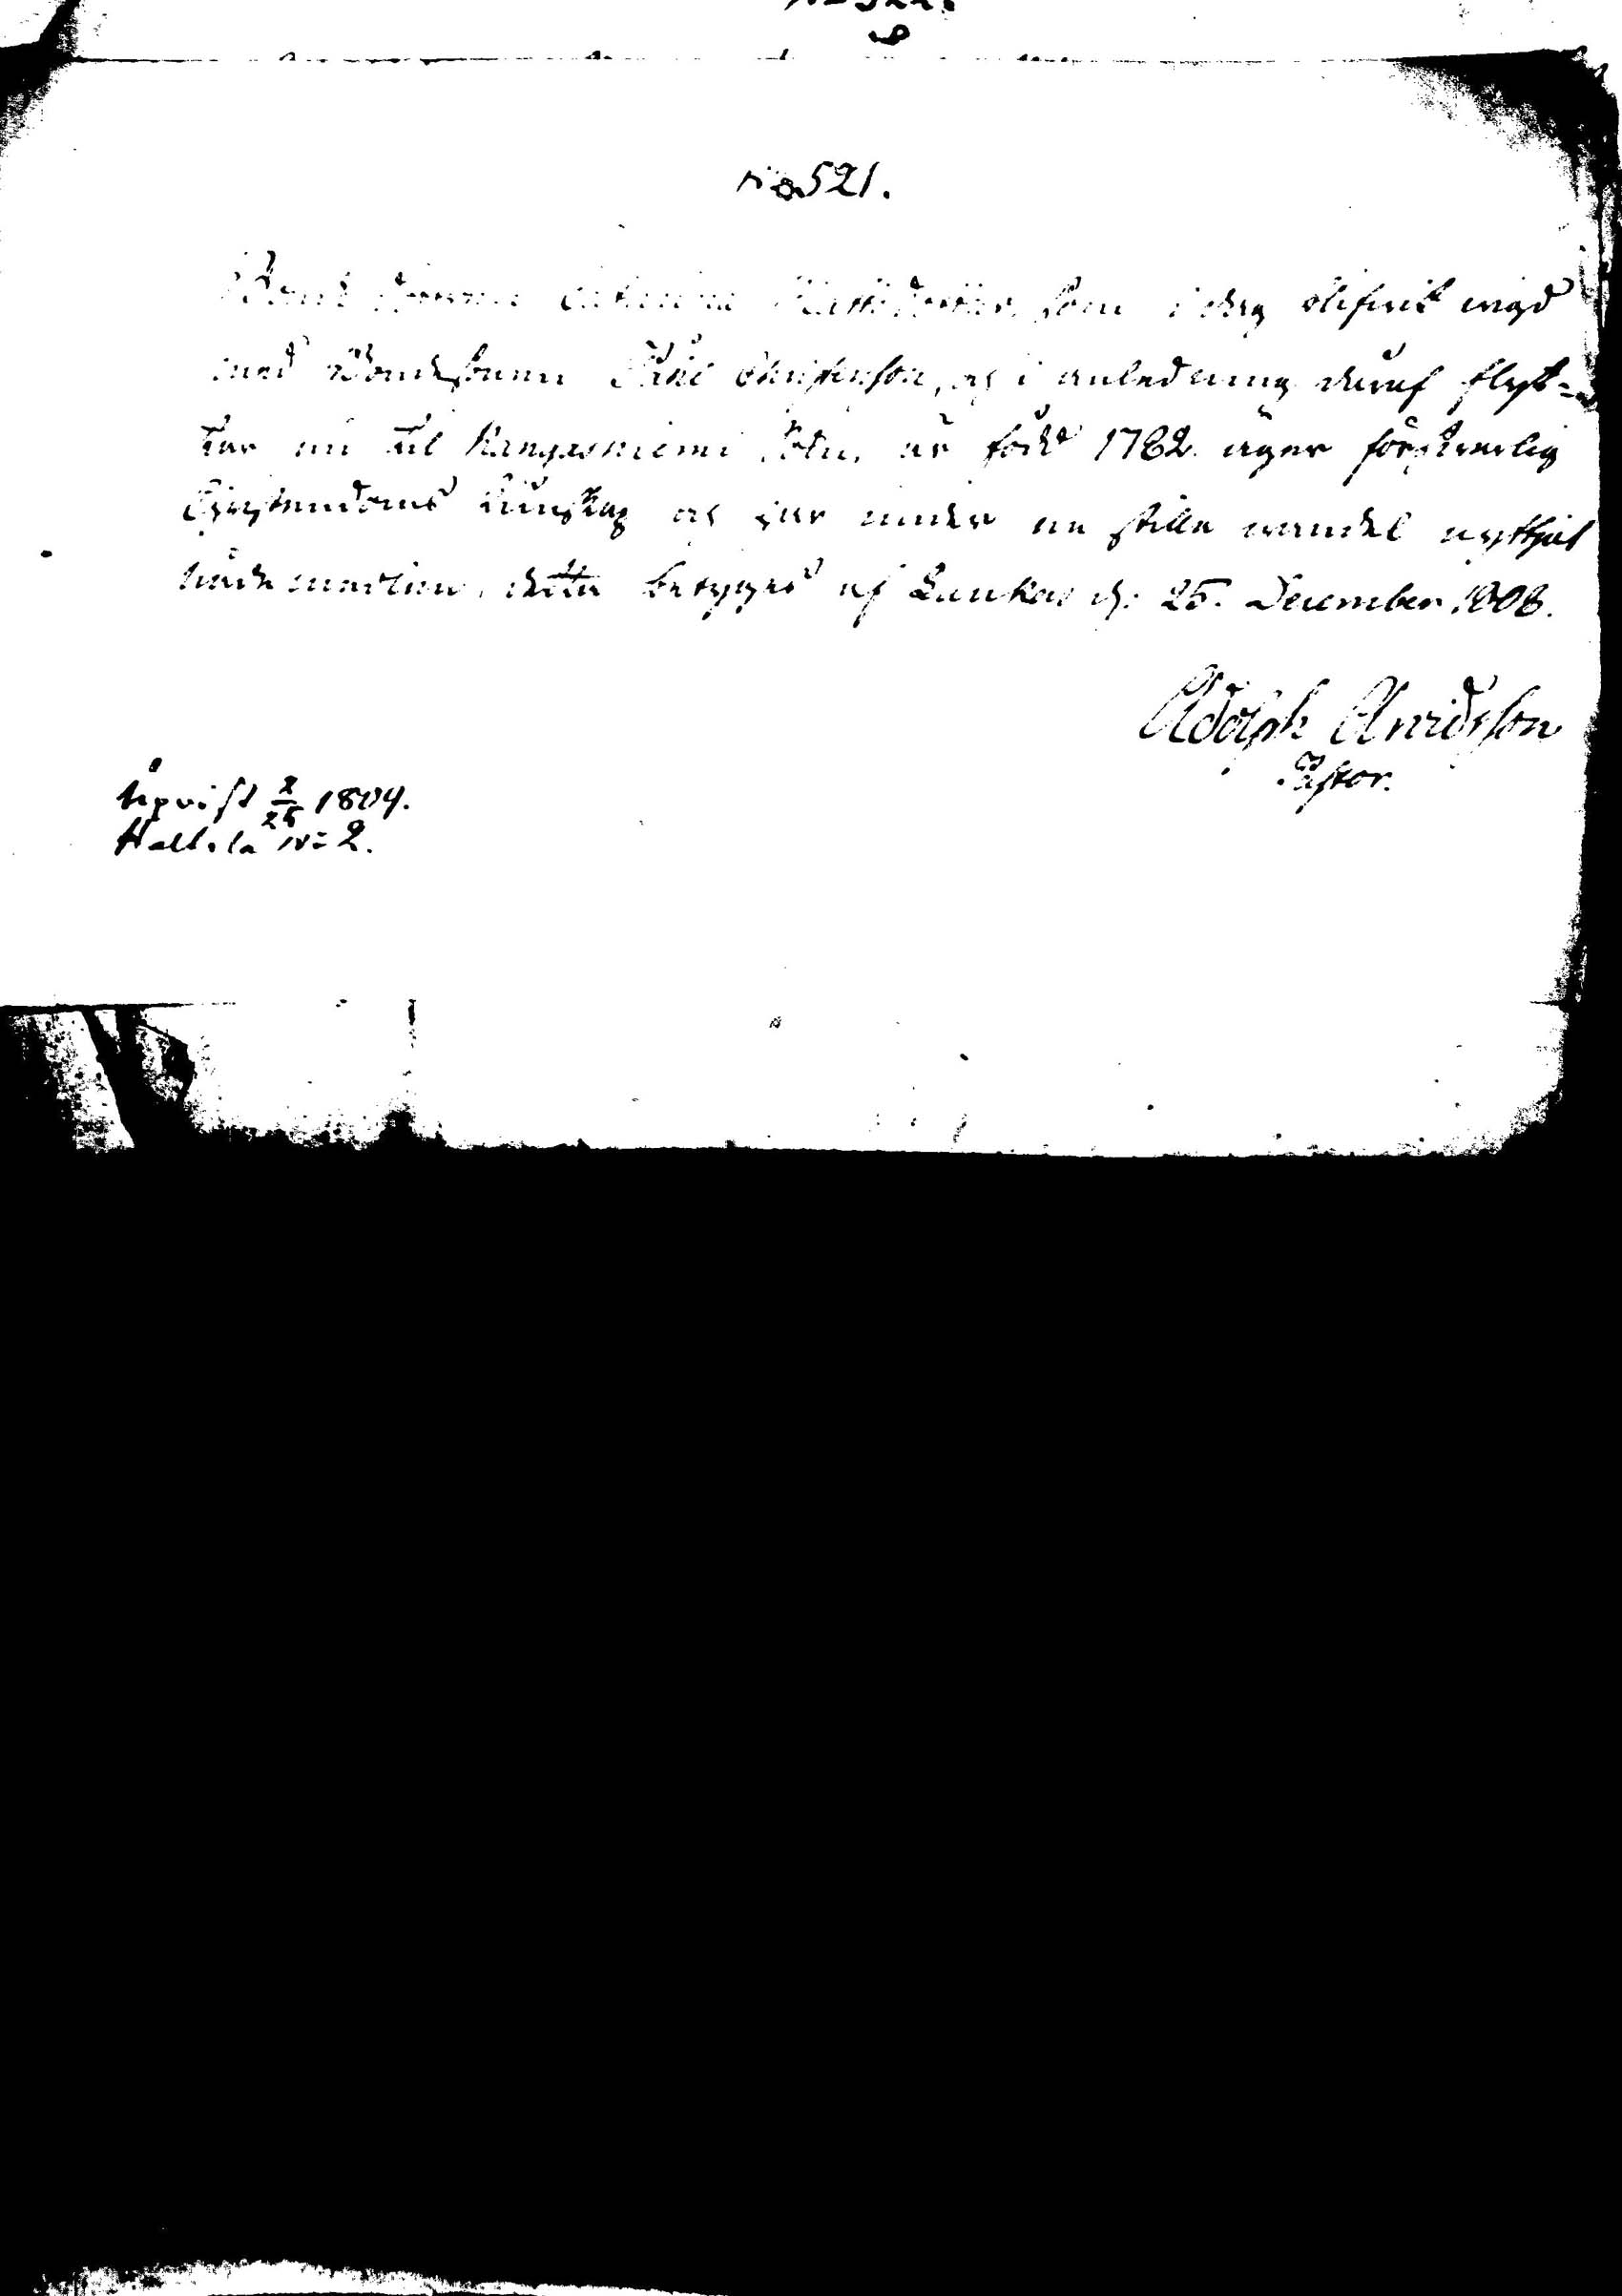 No 521.
som i dag blifvit vigd
med Bondesonen Påhl Christersson, och i anledning deraf flyt=
tar nu til Kangasniemi Sokn, är född 1782. äger försvarlig
Christendoms kunskap och har under en stilla vandel nyttjat
nådemedlen, detta betygas af Laukas d: 25. December 1808.
Adolph Arvidsson
Pastor.
Upvist 2/26 1809.
Hallola No 2.